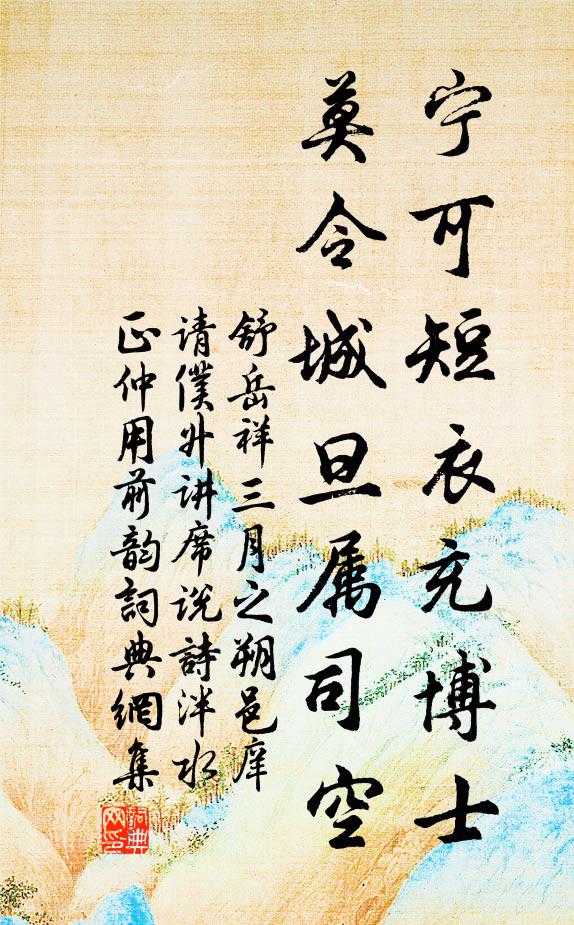 宁可短衣充博士
莫令城旦属司空
舒岳祥三月之朔邑庠
请僕升讲席说詩泮水
正仲用前韵詞典網集
詞典網印